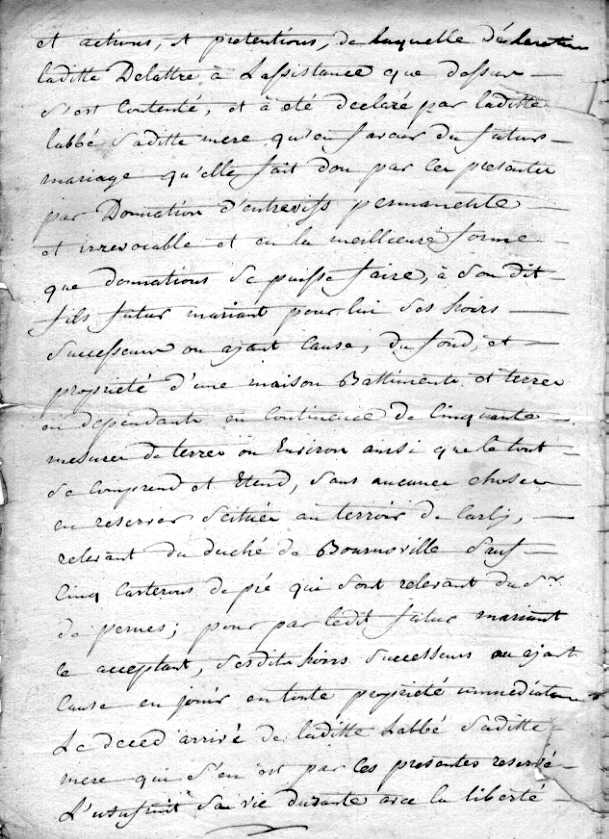 et actions, et pretentions, de laquelle déclaration
laditte Delattre, à Lassistance que dessus
s'est Contenté, et à été declaré par laditte
labbé saditte mere qu'en faveur du futur
mariage qu'elle fait don par ces presentes
par Donnation d'entrevifs permanente
et irrevocable et en la meilleure forme
que donnations se puisse faire, à son dit
fils futur mariant pour lui ses hoirs
successeurs ou ajant Cause, du fond, et
proprieté d'une maison Battiments et terres
en dependante en Continence de Cinquante
mesures de terres ou Environ ainsi que le tout
se Comprend et Etend, sans aucunes choses
en reserver scituée au terroir de Carlÿ,
relevant du duché de Bournoville sauf
Cinq Carterons de pié qui sont relevant du Sr.
de pernes; pour par ledit futur mariant
ce acceptant, sesdits hoirs successeurs ou ajant
Cause en jouir en toute proprieté immédiatem
Le deced arrivé de laditte Labbé saditte
mere qui s'en est par ces presentes reservé
L'usufruit sa vie durante avec la liberté